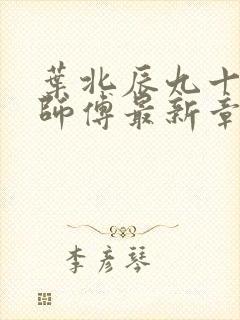 葉北辰九十
師傅最新章
李彥琴